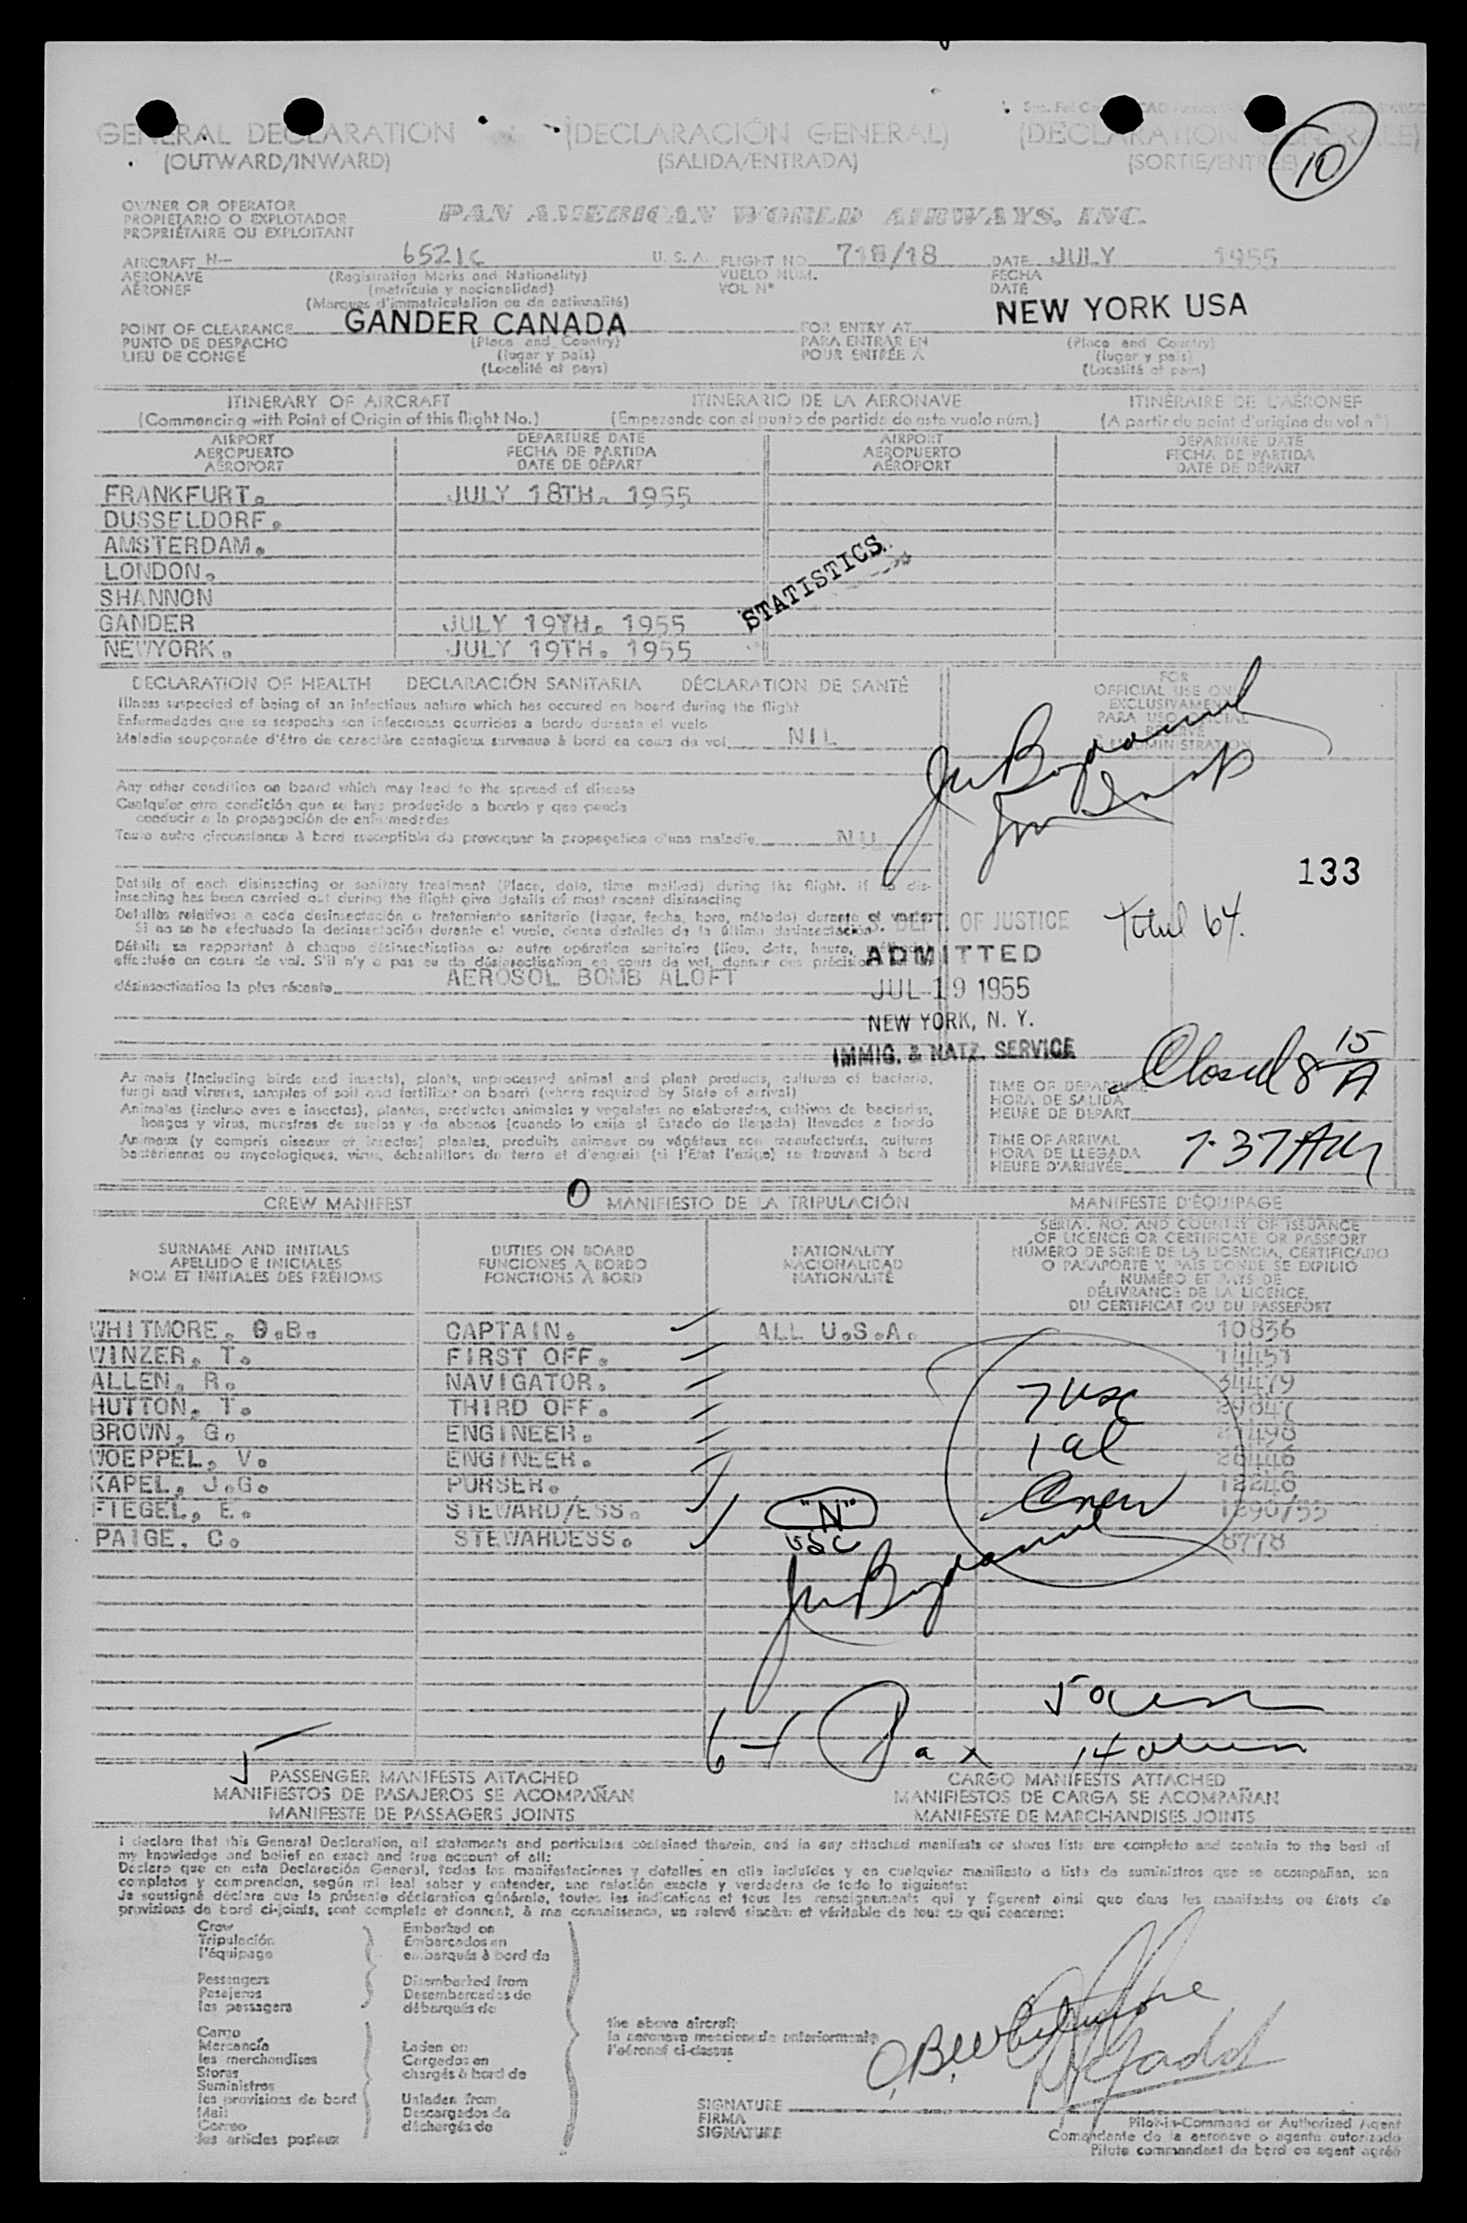 GENERAL DECLARATION (DECLARACIÓN GENERAL) (DECLARATION
(OUTWARD/INWARD) (SALIDA/ENTRADA) (SORTIE/ENTRÉE)
10
OWNER OR OPERATOR
PROPIETARIO O EXPLOTADOR
PROPRIÉTAIRE OU EXPLOITANT
PAN AMERICAN WORLD AIRWAYS, INC.
AIRCRAFT N- 6521C U. S. A. FLIGHT NO 71 /18 DATE JULY 1955
AERONAVE (Registration Marks and Nationality) VUELO NUM. FECHA
AÉRONEF (matrícula y nacionalidad) VOL N° DATE
(Marques d'immatriculation ou de nationalité)
POINT OF CLEARANCE GANDER CANADA FOR ENTRY AT NEW YORK USA
PUNTO DE DESPACHO (Place and Country) PARA ENTRAR EN (Place and Country)
LIEU DE CONGÉ (lugar y país) POUR ENTRÉE À (lugar y país)
(Localité et pays) (Localité et pays)
ITINERARY OF AIRCRAFT ITINERARIO DE LA AERONAVE ITINÉRAIRE DE L'AÉRONEF
(Commencing with Point of Origin of this flight No.) (Empezando con el punto de partida de este vuelo núm.) (A partir du point d'origine du vol n°)
AIRPORT DEPARTURE DATE AIRPORT DEPARTURE DATE
AEROPUERTO FECHA DE PARTIDA AEROPUERTO FECHA DE PARTIDA
AÉROPORT DATE DE DÉPART AÉROPORT DATE DE DÉPART
FRANKFURT. JULY 18TH. 1955
DUSSELDORF.
AMSTERDAM.
LONDON.
SHANNON
GANDER JULY 19TH. 1955
NEWYORK. JULY 19TH. 1955
STATISTICS
DECLARATION OF HEALTH DECLARACIÓN SANITARIA DÉCLARATION DE SANTÉ
Illness suspected of being of an infectious nature which has occured on board during the flight
Enfermedades que se sospecha son infecciosas ocurridas a bordo durante el vuelo
Maladie soupçonnée d'être de caractère contagieux survenue à bord en cours de vol NIL
FOR
OFFICIAL USE ONLY
EXCLUSIVAMENTE
PARA USO OFICIAL
RÉSERVÉ
Any other condition on board which may lead to the spread of disease
Cualquier otra condición que se haya producido a bordo y que pueda
conducir a la propagación de enfermedades
Toute autre circonstance à bord susceptible de provoquer la propagation d'une maladie NIL
133
Details of each disinsecting or sanitary treatment (Place, date, time method) during the flight. If no dis-
insecting has been carried out during the flight give details of most recent disinsecting
Detalles relativos a cada desinsectación o tratamiento sanitario (lugar, fecha, hora, método) durante el vuelo.
Si no se ha efectuado la desinsectación durante el vuelo, dense detalles de la última desinsectación
Détails se rapportant à chaque désinsectisation ou autre opération sanitaire (lieu, date, heure,
effectuée en cours de vol. S'il n'y a pas eu de désinsectisation en cours de vol, donner des précisions
désinsectisation la plus récente AEROSOL BOMB ALOFT
DEPT. OF JUSTICE
ADMITTED
JUL 19 1955
NEW YORK, N. Y.
IMMIG. & NATZ. SERVICE
Total 64.
Closed 8 15 A
Animals (including birds and insects), plants, unprocessed animal and plant products, cultures of bacteria,
fungi and viruses, samples of soil and fertilizer on board (where required by State of arrival)
Animales (incluso aves e insectos), plantas, productos animales y vegetales no elaborados, cultivos de bacterias,
hongos y virus, muestras de suelos y de abonos (cuando lo exija el Estado de llegada) llevados a bordo
Animaux (y compris oiseaux et insectes) plantes, produits animaux ou végétaux non manufacturés, cultures
bactériennes ou mycologiques, virus, échantillons de terre et d'engrais (si l'État l'exige) se trouvant à bord
TIME OF DEPARTURE
HORA DE SALIDA
HEURE DE DÉPART
TIME OF ARRIVAL
HORA DE LLEGADA
HEURE D'ARRIVÉE
7.37 AM
CREW MANIFEST O MANIFIESTO DE LA TRIPULACIÓN MANIFESTE D'ÉQUIPAGE
SURNAME AND INITIALS
APELLIDO E INICIALES
NOM ET INITIALES DES PRÉNOMS
DUTIES ON BOARD
FUNCIONES A BORDO
FONCTIONS À BORD
NATIONALITY
NACIONALIDAD
NATIONALITÉ
SERIAL NO. AND COUNTRY OF ISSUANCE
OF LICENCE OR CERTIFICATE OR PASSPORT
NÚMERO DE SERIE DE LA LICENCIA, CERTIFICADO
O PASAPORTE Y PAÍS DONDE SE EXPIDIÓ
NUMÉRO ET PAYS DE
DÉLIVRANCE DE LA LICENCE,
DU CERTIFICAT OU DU PASSEPORT
WHITMORE, O.B. CAPTAIN. ALL U.S.A. 10836
WINZER, T. FIRST OFF. 14451
ALLEN, R. NAVIGATOR. 34479
HUTTON, T. THIRD OFF.
BROWN, G. ENGINEER.
WOEPPEL, V. ENGINEER.
KAPEL, J.G. PURSER.
FIEGEL, E. STEWARD/ESS. 1290/55
PAIGE, C. STEWARDESS. 8778
7 USC
1 al
Crew
"N"
USC
Pax
14
PASSENGER MANIFESTS ATTACHED CARGO MANIFESTS ATTACHED
MANIFIESTOS DE PASAJEROS SE ACOMPAÑAN MANIFIESTOS DE CARGA SE ACOMPAÑAN
MANIFESTE DE PASSAGERS JOINTS MANIFESTE DE MARCHANDISES JOINTS
I declare that this General Declaration, all statements and particulars contained therein, and in any attached manifests or stores lists are complete and contain to the best of
my knowledge and belief an exact and true account of all:
Declaro que en esta Declaración General, todas las manifestaciones y detalles en ella incluídos y en cualquier manifiesto o lista de suministros que se acompañan, son
completos y comprenden, según mi leal saber y entender, una relación exacta y verdadera de todo lo siguiente:
Je soussigné déclare que la présente déclaration générale, toutes les indications et tous les renseignements qui y figurent ainsi que dans les manifestes ou états de
provisions de bord ci-joints, sont complets et donnent, à ma connaissance, un relevé sincère et véritable de tout ce qui concerne:
Crew Embarked on
Tripulación Embarcados en
l'équipage embarqués à bord de
Passengers Disembarked from
Pasajeros Desembarcados de
les passagers débarqués de
Cargo
Mercancía Laden on
les marchandises Cargados en
Stores chargés à bord de
Suministros
les provisions de bord Unladen from
Mail Descargados de
Correo déchargés de
les articles postaux
the above aircraft
la aeronave mencionada anteriormente
l'aéronef ci-dessus
O.B. Whitmore
SIGNATURE
FIRMA
SIGNATURE
Pilot-in-Command or Authorized Agent
Comandante de la aeronave o agente autorizado
Pilote commandant de bord ou agent agréé